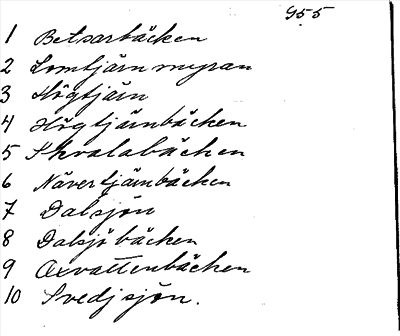 955
1 Betsarbäcken
2 Lomtjärnmyran
3 Högtjärn
4 Högtjärnbäcken
5 Skvalabäcken
6 Nävertjärnbäcken
7 Dalsjön
8 Dalsjöbäcken
9 Oxvattenbäcken
10 Svedjsjön.